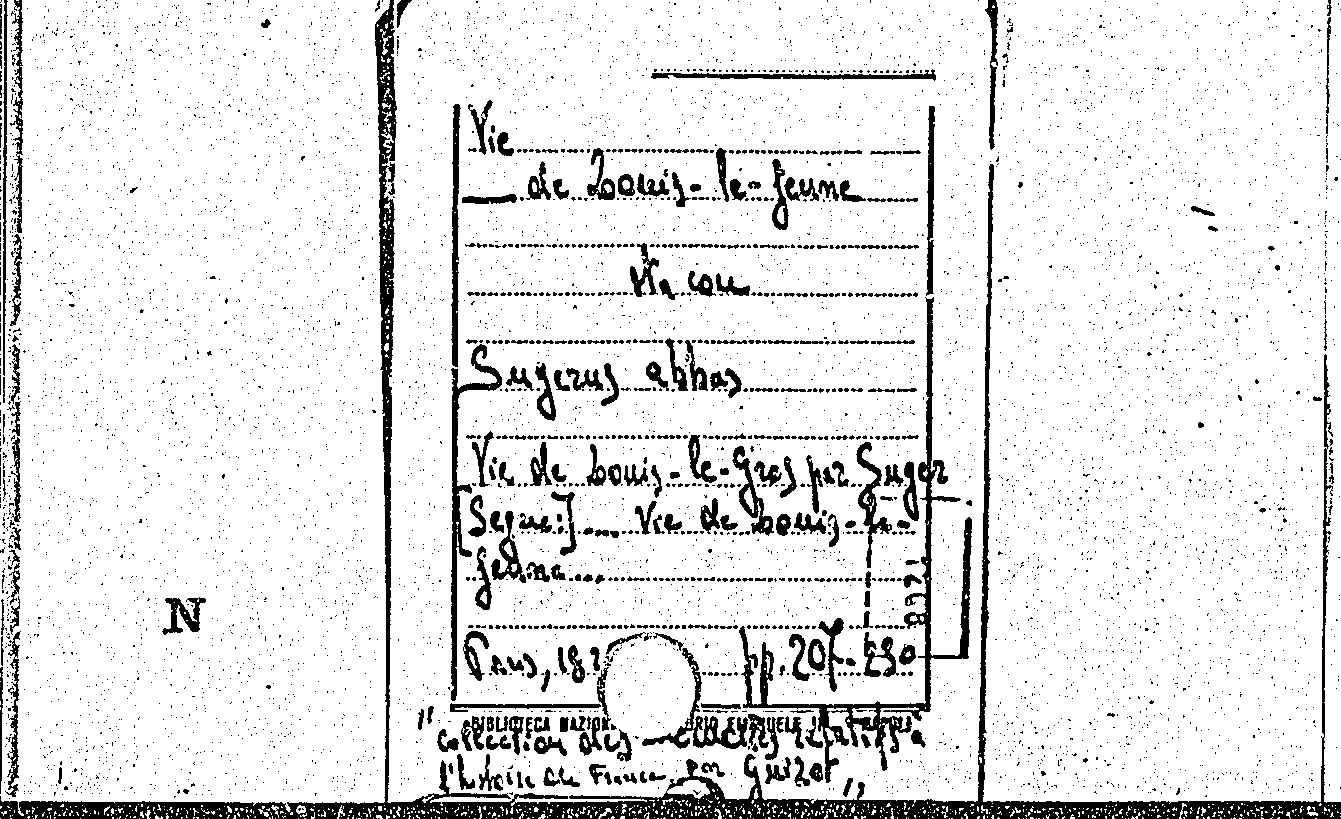 Vie
de Louis-le-Jeune
in cou
Sugerus abbas
Vie de Louis-le-Gros par Suger
[Segue:]... Vie de Louis-le-
Jeune...
Paris, 182 pp. 207-230
BIBLIOTECA NAZION RIO EMANUELE
"Collection des relatifs à
l'histoire de France par Guizot"
N